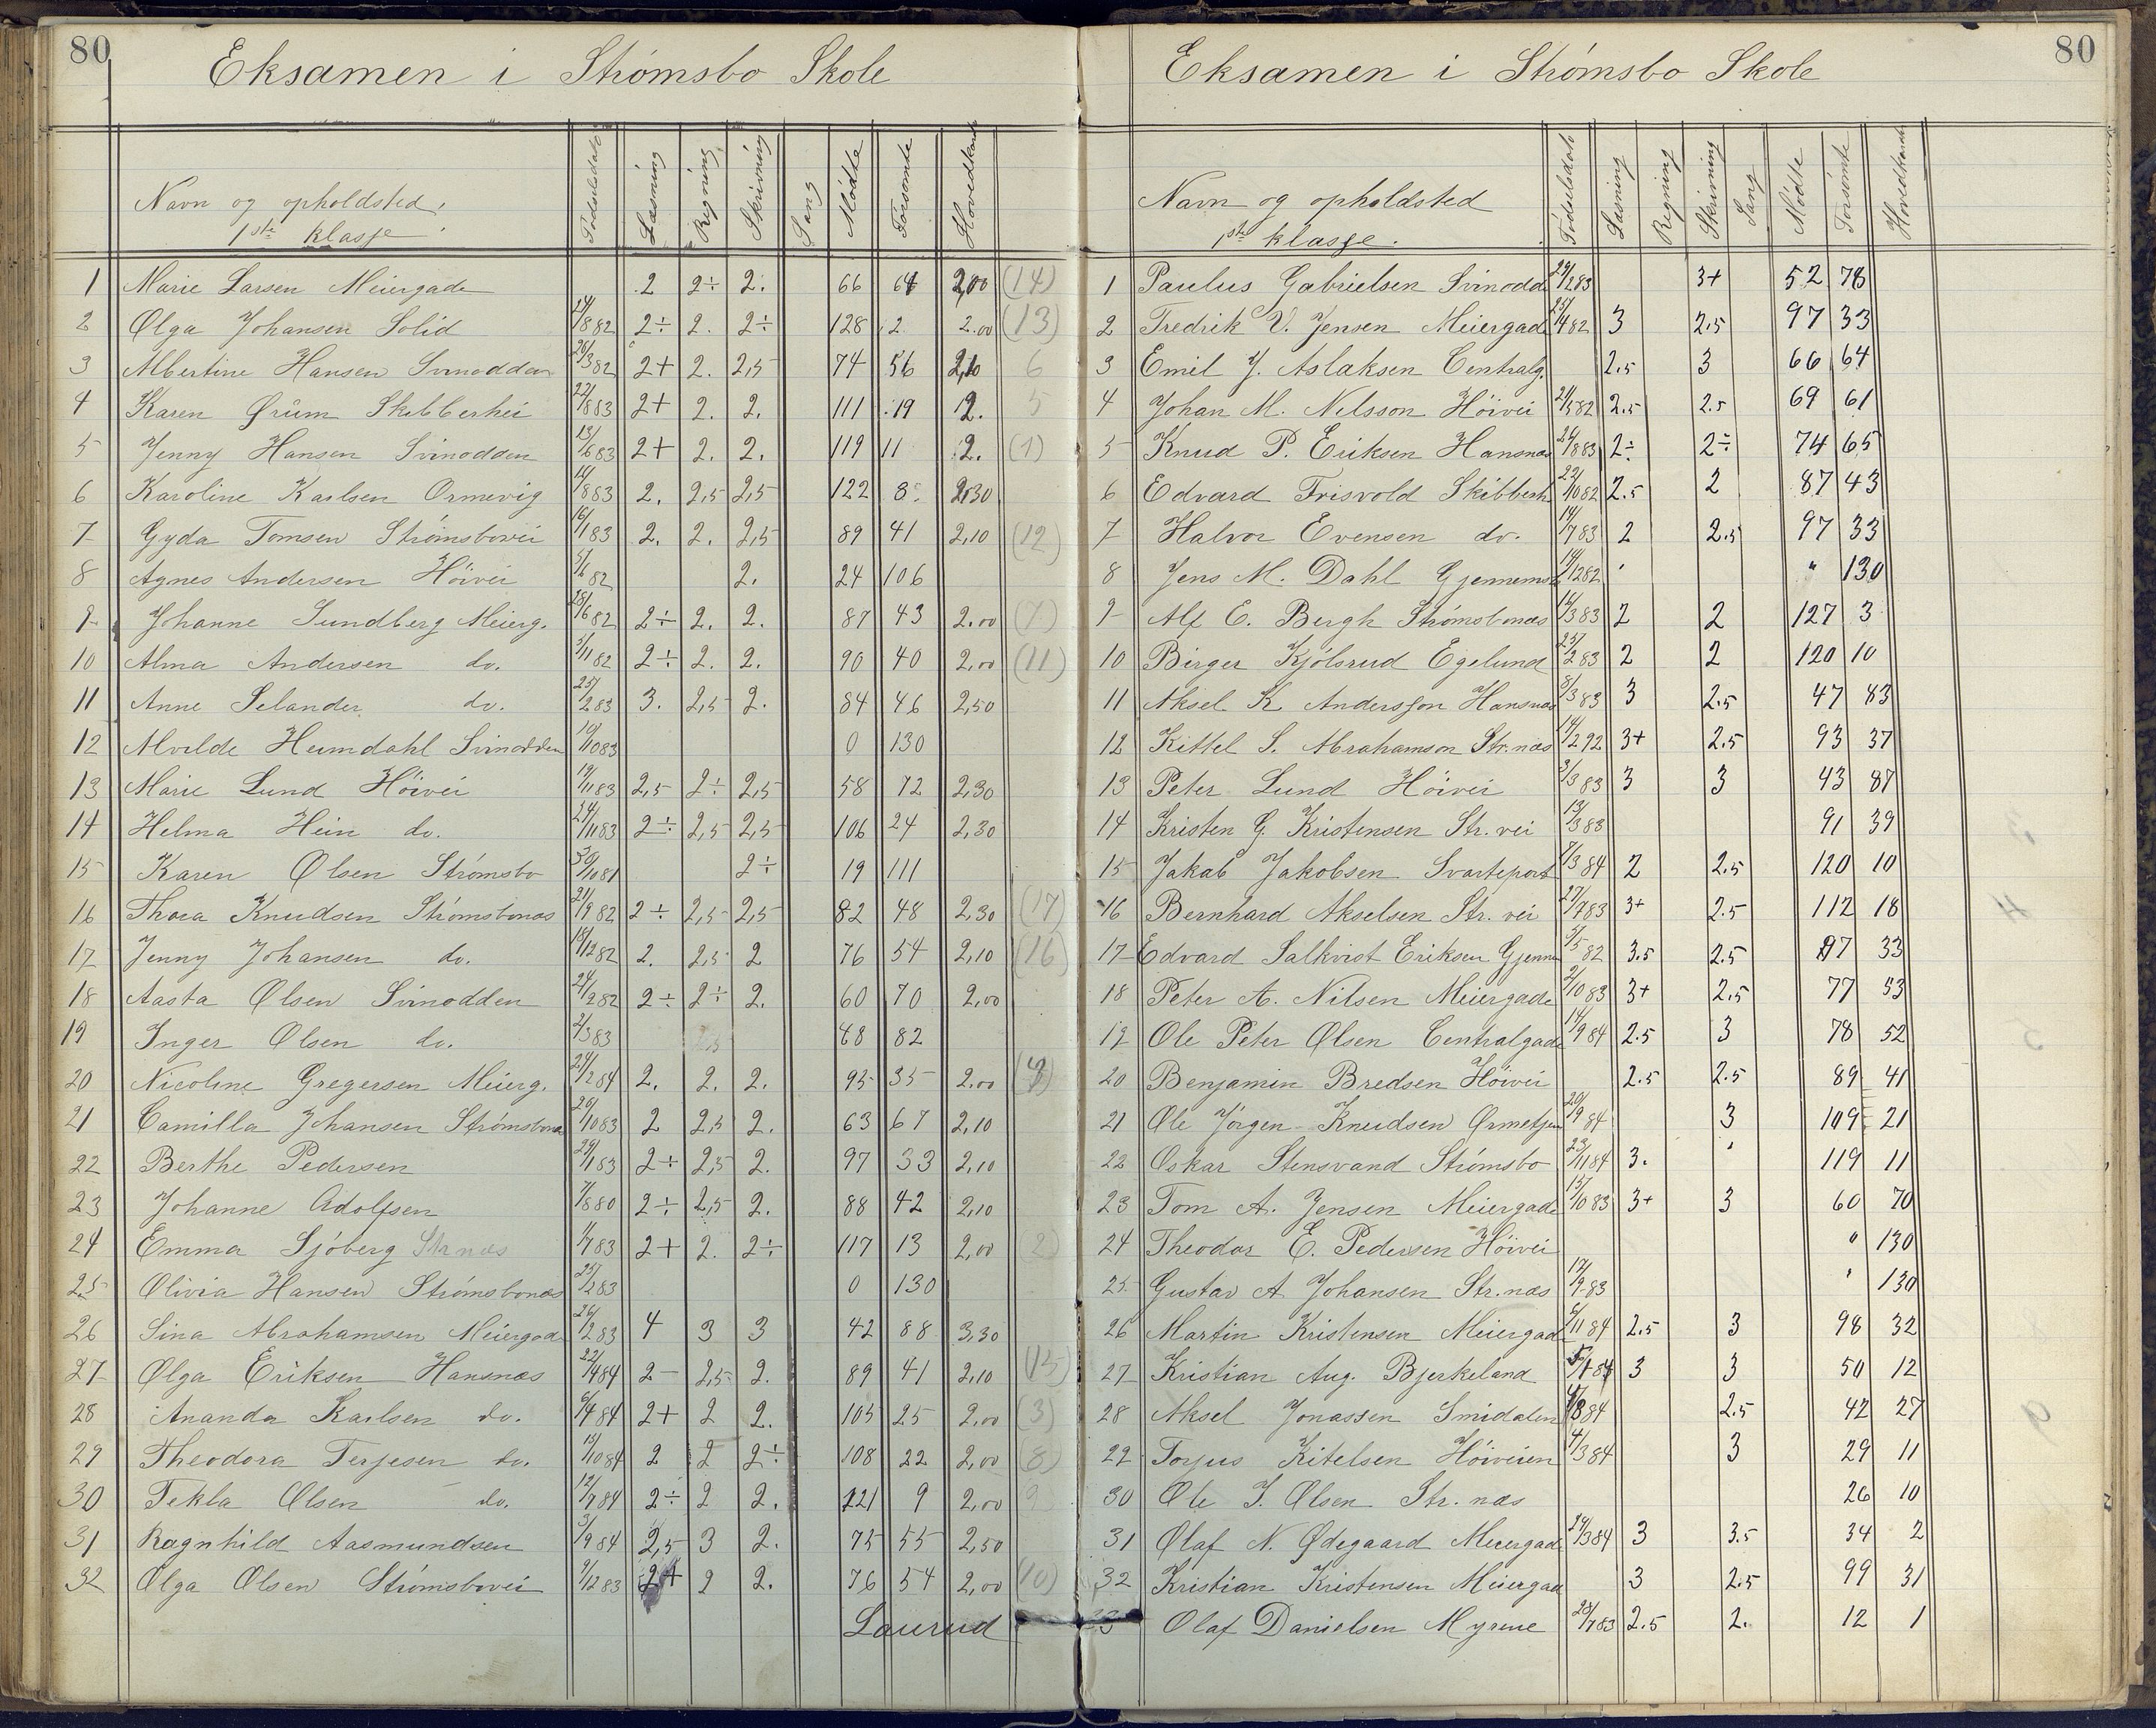 80
Eksamen i Strømsbo Skole
Navn og opholdsted. Fødselsdato Læsning Regning Skrivning Sang Mødte Forsømte Hovedkarakt
1ste klasse
1 Marie Larsen Meiergade 2 2÷ 2. 66 64 2,00 (14)
2 Olga Johansen Solid 24/8 82 2÷ 2. 2÷ 128 2 2.00 (13)
3 Albertine Hansen Svinodden 26/3 82 2+ 2. 2,5 74 56 2,10 6
4 Karen Ørum Skibberhei 22/8 83 2+ 2. 2. 111 19 2. 5
5 Jenny Hansen Svinodden 13/6 83 2+ 2. 2. 119 11 2. (1)
6 Karoline Karlsen Ormevig 14/8 83 2. 2,5 2,5 122 8 2,30
7 Gyda Tomsen Strømsbovei 16/1 83 2. 2. 2,5 89 41 2,10 (12)
8 Agnes Andersen Höivei 5/6 82 2. 24 106
9 Johanne Sundberg Meierg. 28/6 82 2÷ 2. 2. 87 43 2.00 (7)
10 Alma Andersen do. 5/11 82 2÷ 2. 2. 90 40 2,00 (11)
11 Anne Selander do. 25/2 83 3. 2,5 2. 84 46 2,50
12 Alvilde Heimdahl Svinodden 10/10 83 0 130
13 Marie Lund Höivei 19/11 83 2,5 2÷ 2,5 58 72 2,30
14 Helma Hein do. 24/11 83 2÷ 2,5 2,5 106 24 2,30
15 Karen Olsen Strømsbo 30/10 81 2÷ 19 111
16 Thora Knudsen Strømsbonæs 21/9 82 2÷ 2,5 2,5 82 48 2,30 (17)
17 Jenny Johansen do. 18/12 82 2. 2,5 2 76 54 2,10 (16)
18 Aasta Olsen Svinodden 24/2 82 2÷ 2÷ 2. 60 70 2,00
19 Inger Olsen do. 2/3 83 48 82
20 Nicoline Gregersen Meierg. 24/2 84 2. 2. 2. 95 35 2.00 (4)
21 Camilla Johansen Strømsbonæs 20/10 83 2 2,5 2. 63 67 2,10
22 Berthe Pedersen 29/1 83 2÷ 2,5 2. 97 33 2,10
23 Johanne Adolfsen 7/8 80 2÷ 2,5 2. 88 42 2,10
24 Emma Sjöberg Strnæs 1/7 83 2+ 2. 2÷ 117 13 2,00 2)
25 Olivia Hansen Strømsbonæs 25/2 83 0 130
26 Sina Abrahamsen Meiergade 26/2 83 4 3 3 42 88 3,30
27 Olga Eriksen Hansnæs 22/4 84 2- 2,5 2. 89 41 2,10 (15)
28 Ananda Karlsen do. 6/4 84 2+ 2 2. 105 25 2,00 (3)
29 Theodora Terjesen do. 15/10 84 2 2 2÷ 108 22 2,00 (8)
30 Tekla Olsen do. 12/7 84 2÷ 2 2. 121 9 2,00 9
31 Ragnhild Aasmundsen 3/9 84 2,5 3 2. 75 55 2,50
32 Olga Olsen Strømsbovei 9/12 83 2+ 2 2. 76 54 2,00 (10)
Laurud
80
Eksamen i Strømsbo Skole
Navn og opholdsted Fødselsdato Læsning Regning Skrivning Sang Mødte Forsømte Hovedkarakt
1ste klasse.
1 Paulus Gabrielsen Svinodd 29/12 83 3+ 52 78
2 Fredrik V. Jensen Meiergade 25/4 82 3 2.5 97 33
3 Emil J. Aslaksen Centralg. 2.5 3 66 64
4 Johan M. Nilsson Höivei 21/5 82 2.5 2.5 69 61
5 Knud P. Eriksen Hansnæs 24/8 83 2÷ 2÷ 74 65
6 Edvard Frisvold Skibberh 22/10 82 2.5 2 87 43
7 Halvor Evensen do. 14/7 83 2 2.5 97 33
8 Jens M. Dahl Gjennemst 14/12 82 " 130
9 Alf E. Bergh Strømsbonæs 16/3 83 2 2 127 3
10 Birger Kjölsrud Egelund 25/2 83 2 2 120 10
11 Aksel K Andersson Hansnæs 8/3 83 3 2.5 47 83
12 Kittel S. Abrahamson Str.næs 14/2 92 3+ 2.5 93 37
13 Peter Lund Höivei 3/3 83 3 3 43 87
14 Kristen G. Kristensen Str. vei 13/3 83 91 39
15 Jakab Jakobsen Svarteport 7/3 84 2 2.5 120 10
16 Bernhard Akselsen Str. vei 27/7 83 3+ 2.5 112 18
17 Edvard Salkvist Eriksen Gjenne 5/5 82 3.5 2.5 97 33
18 Peter A. Nilsen Meiergade 2/10 83 3+ 2.5 77 53
19 Ole Peter Olsen Centralgade 14/9 84 2.5 3 78 52
20 Benjamin Bredsen Höivei 2.5 2.5 89 41
21 Ole Jörgen Knudsen Ørmetjen 20/9 84 3 109 21
22 Oskar Stensvand Strømsbo 23/11 84 3. " 119 11
23 Tom A. Jensen Meiergade 15/10 83 3+ 3 60 70
24 Theodor E. Pedersen Höivei " 130
25 Gustav A Johansen Str.næs 17/9 83 " 130
26 Martin Kristensen Meiergade 6/11 84 2.5 3 98 32
27 Kristian Aug. Bjerkeland 5/1 84 3 3 50 12
28 Aksel Jonassen Smidalen 4/8 84 2.5 42 27
29 Torjus Kitelsen Höiveien 4/3 84 3 29 11
30 Ole J. Olsen Str. næs 26 10
31 Olaf N. Ødegaard Meiergade 24/3 84 3 3.5 34 2
32 Kristian Kristensen Meiergad 3 2.5 99 31
33 Olaf Danielsen Myrene 28/7 83 2.5 2. 12 1